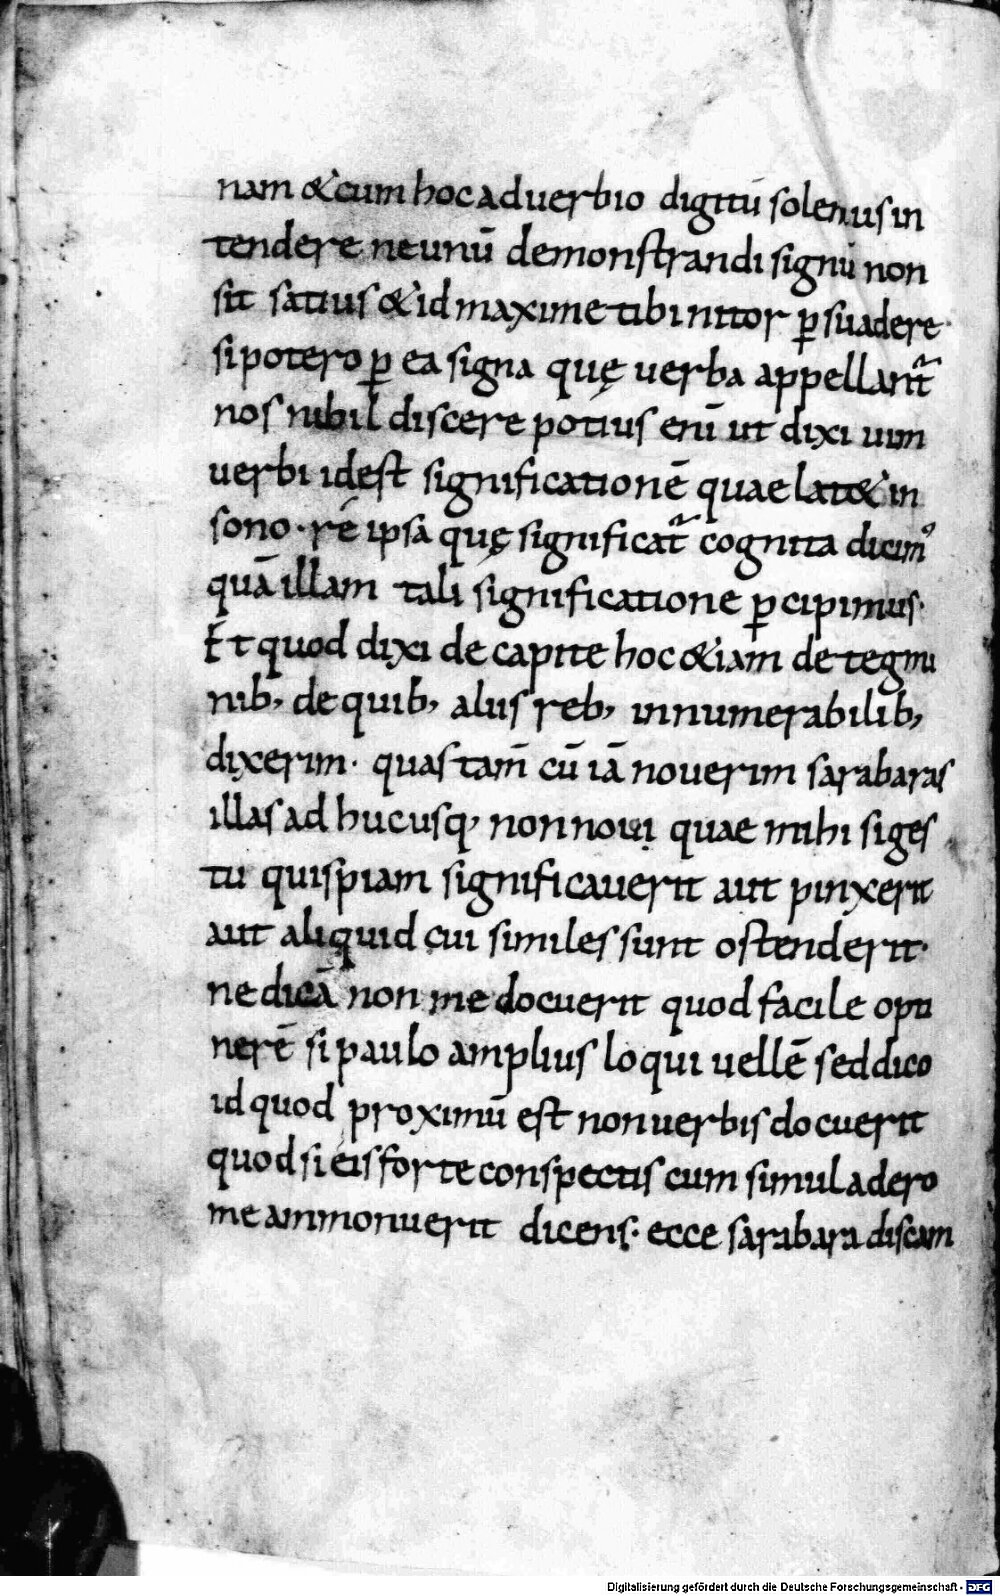 nam &cum hoc aduerbio digitū solemus in
tendere ne unū demonstrandi signū non
sit satius & id maxime tibi nitor ꝑsuadere·
si potero ꝑ ea signa quę uerba appellant᷑
nos nihil discere potius enī ut dixi uim
uerbi id est significationē quae lat& in
sono· rē ipsā quę significat᷑ cognita dicimꝰ
quā illam tali significatione ꝑcipimus·
Et quod dixi de capite hoc &iam de tegmi
nib, de quib, aliis reb, innumerabilib,
dixerim· quas tam̄ cū iā nouerim sarabaras
illas ad hucusq, non noui quae mihi si ges
tu quispiam significauerit aut pinxerit
aut aliquid cui similes sunt ostenderit·
ne dicā non me docuerit quod facile opti
nerē si paulo amplius loqui uellē sed dico
id quod proximū est non uerbis docuerit
quod si eis forte conspectis cum simul adero
me ammonuerit dicens· ecce sarabara discam
Digitalisierung gefördert durch die Deutsche Forschungsgemeinschaft - DFG